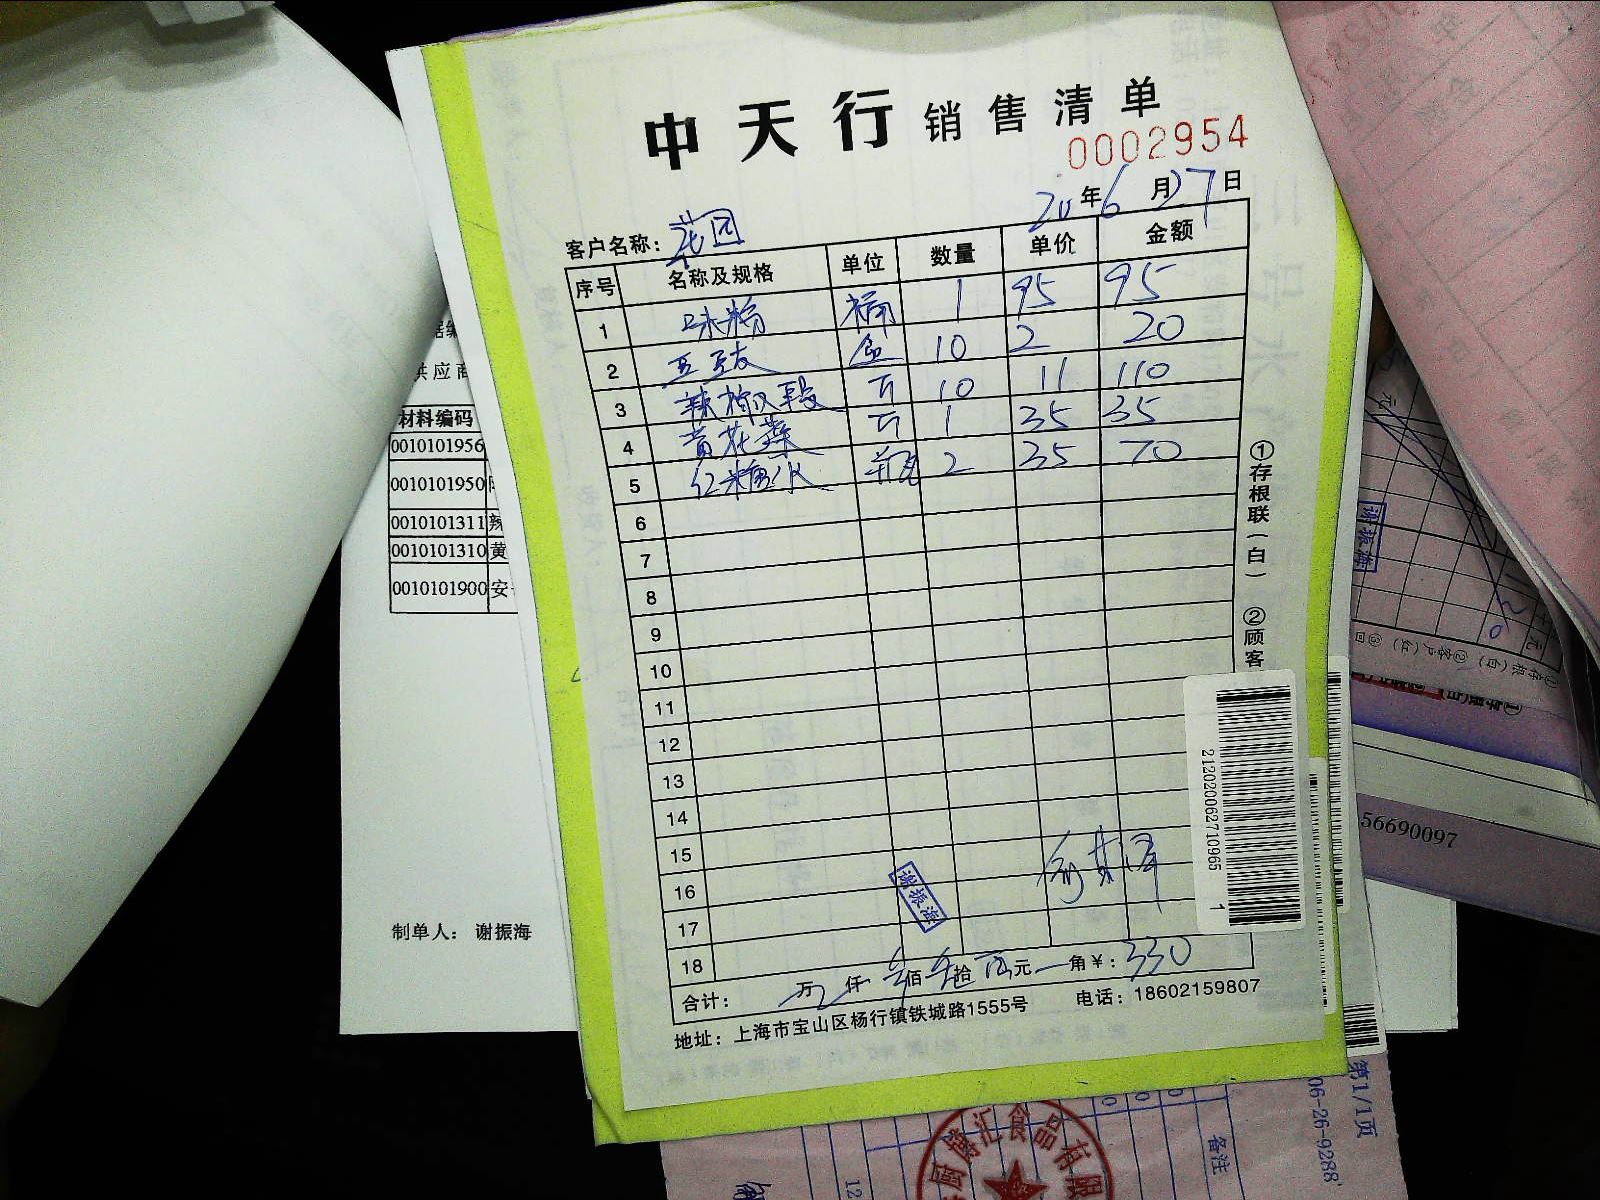 中天行 销售清单
0002954
20年6月27日
客户名称：花园
序号 名称及规格 单位 数量 单价 金额
1 味粉 桶 1 95 95
2 豆豉 盒 10 2 20
3 辣椒段 斤 10 11 110
4 黄花菜 斤 1 35 35
5 红糖水 瓶 2 35 70
6
7
8
9
10
11
12
13
14
15
16
17
18
谢振海
合计： 万 仟 佰 拾 元 角 ¥：330
地址：上海市宝山区杨行镇铁城路1555号 电话：18602159807
①存根联（白） ②顾客
2120200627109651
供应商
材料编码
0010101956
0010101950
0010101311 辣
0010101310 黄
0010101900 安
制单人： 谢振海
谢振海
56690097
第1/1页
06-26-9288
备注
12